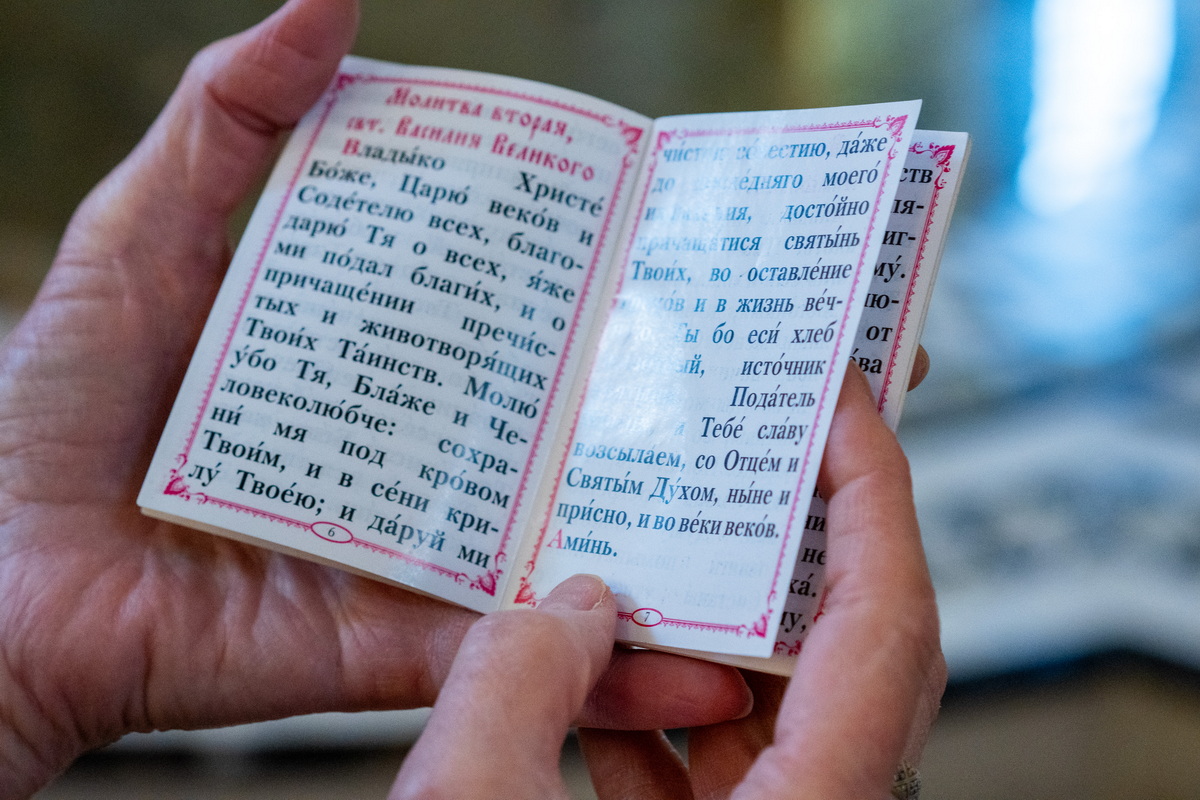 Молитва вторая,
свт. Василия Великого
Влады́ко Христе́
Бо́же, Царю́ веко́в и
Соде́телю всех, благо-
дарю́ Тя о всех, я́же
ми по́дал благи́х, и о
причаще́нии пречи́с-
тых и животворя́щих
Твои́х Та́инств. Молю́
у́бо Тя, Бла́же и Че-
ловеколю́бче: сохра-
ни́ мя под кро́вом
Твои́м, и в се́ни кри-
лу́ Твое́ю; и да́руй ми
6
со́вестию, да́же
до после́дняго моего́
досто́йно
причаща́тися святы́нь
Твои́х, во оставле́ние
и в жизнь ве́ч-
Ты бо еси́ хлеб
исто́чник
Пода́тель
и Тебе́ сла́ву
возсыла́ем, со Отце́м и
Святы́м Ду́хом, ны́не и
при́сно, и во ве́ки веко́в.
Ами́нь.
7
ств
ля-
иг-
му́.
лю-
от
о́ва
не
ха́.
му,